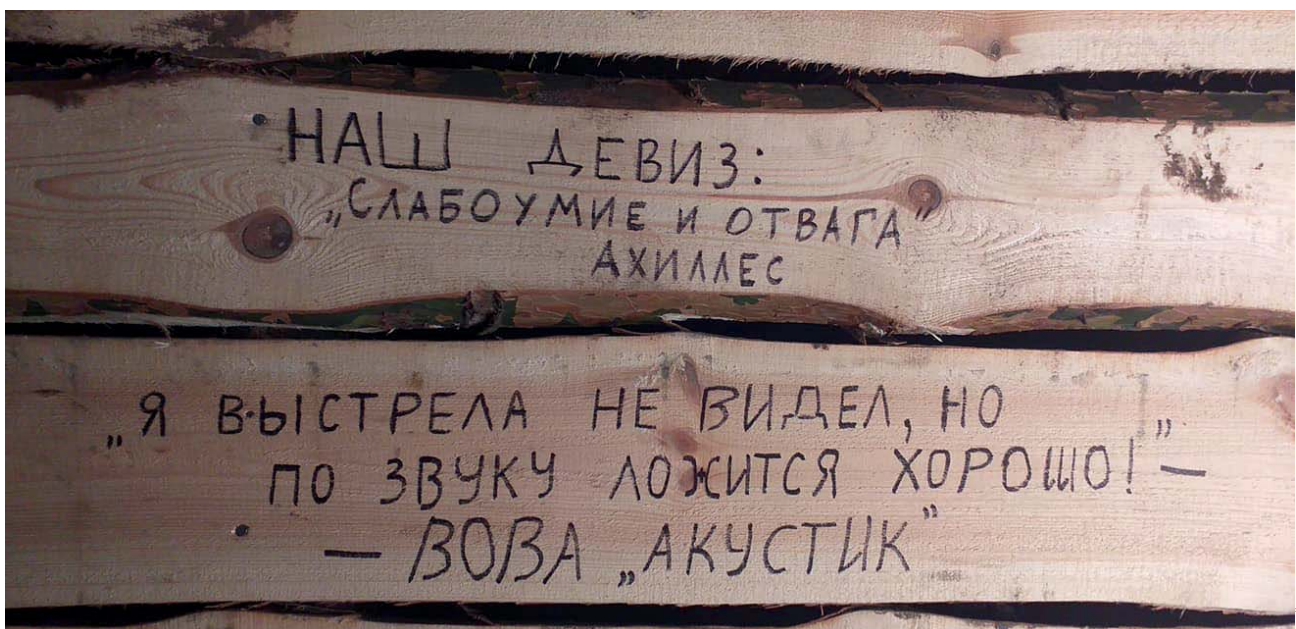 НАШ ДЕВИЗ:
„СЛАБОУМИЕ И ОТВАГА”
АХИЛЛЕС
„Я ВЫСТРЕЛА НЕ ВИДЕЛ, НО
ПО ЗВУКУ ЛОЖИТСЯ ХОРОШО!” —
— ВОВА „АКУСТИК”